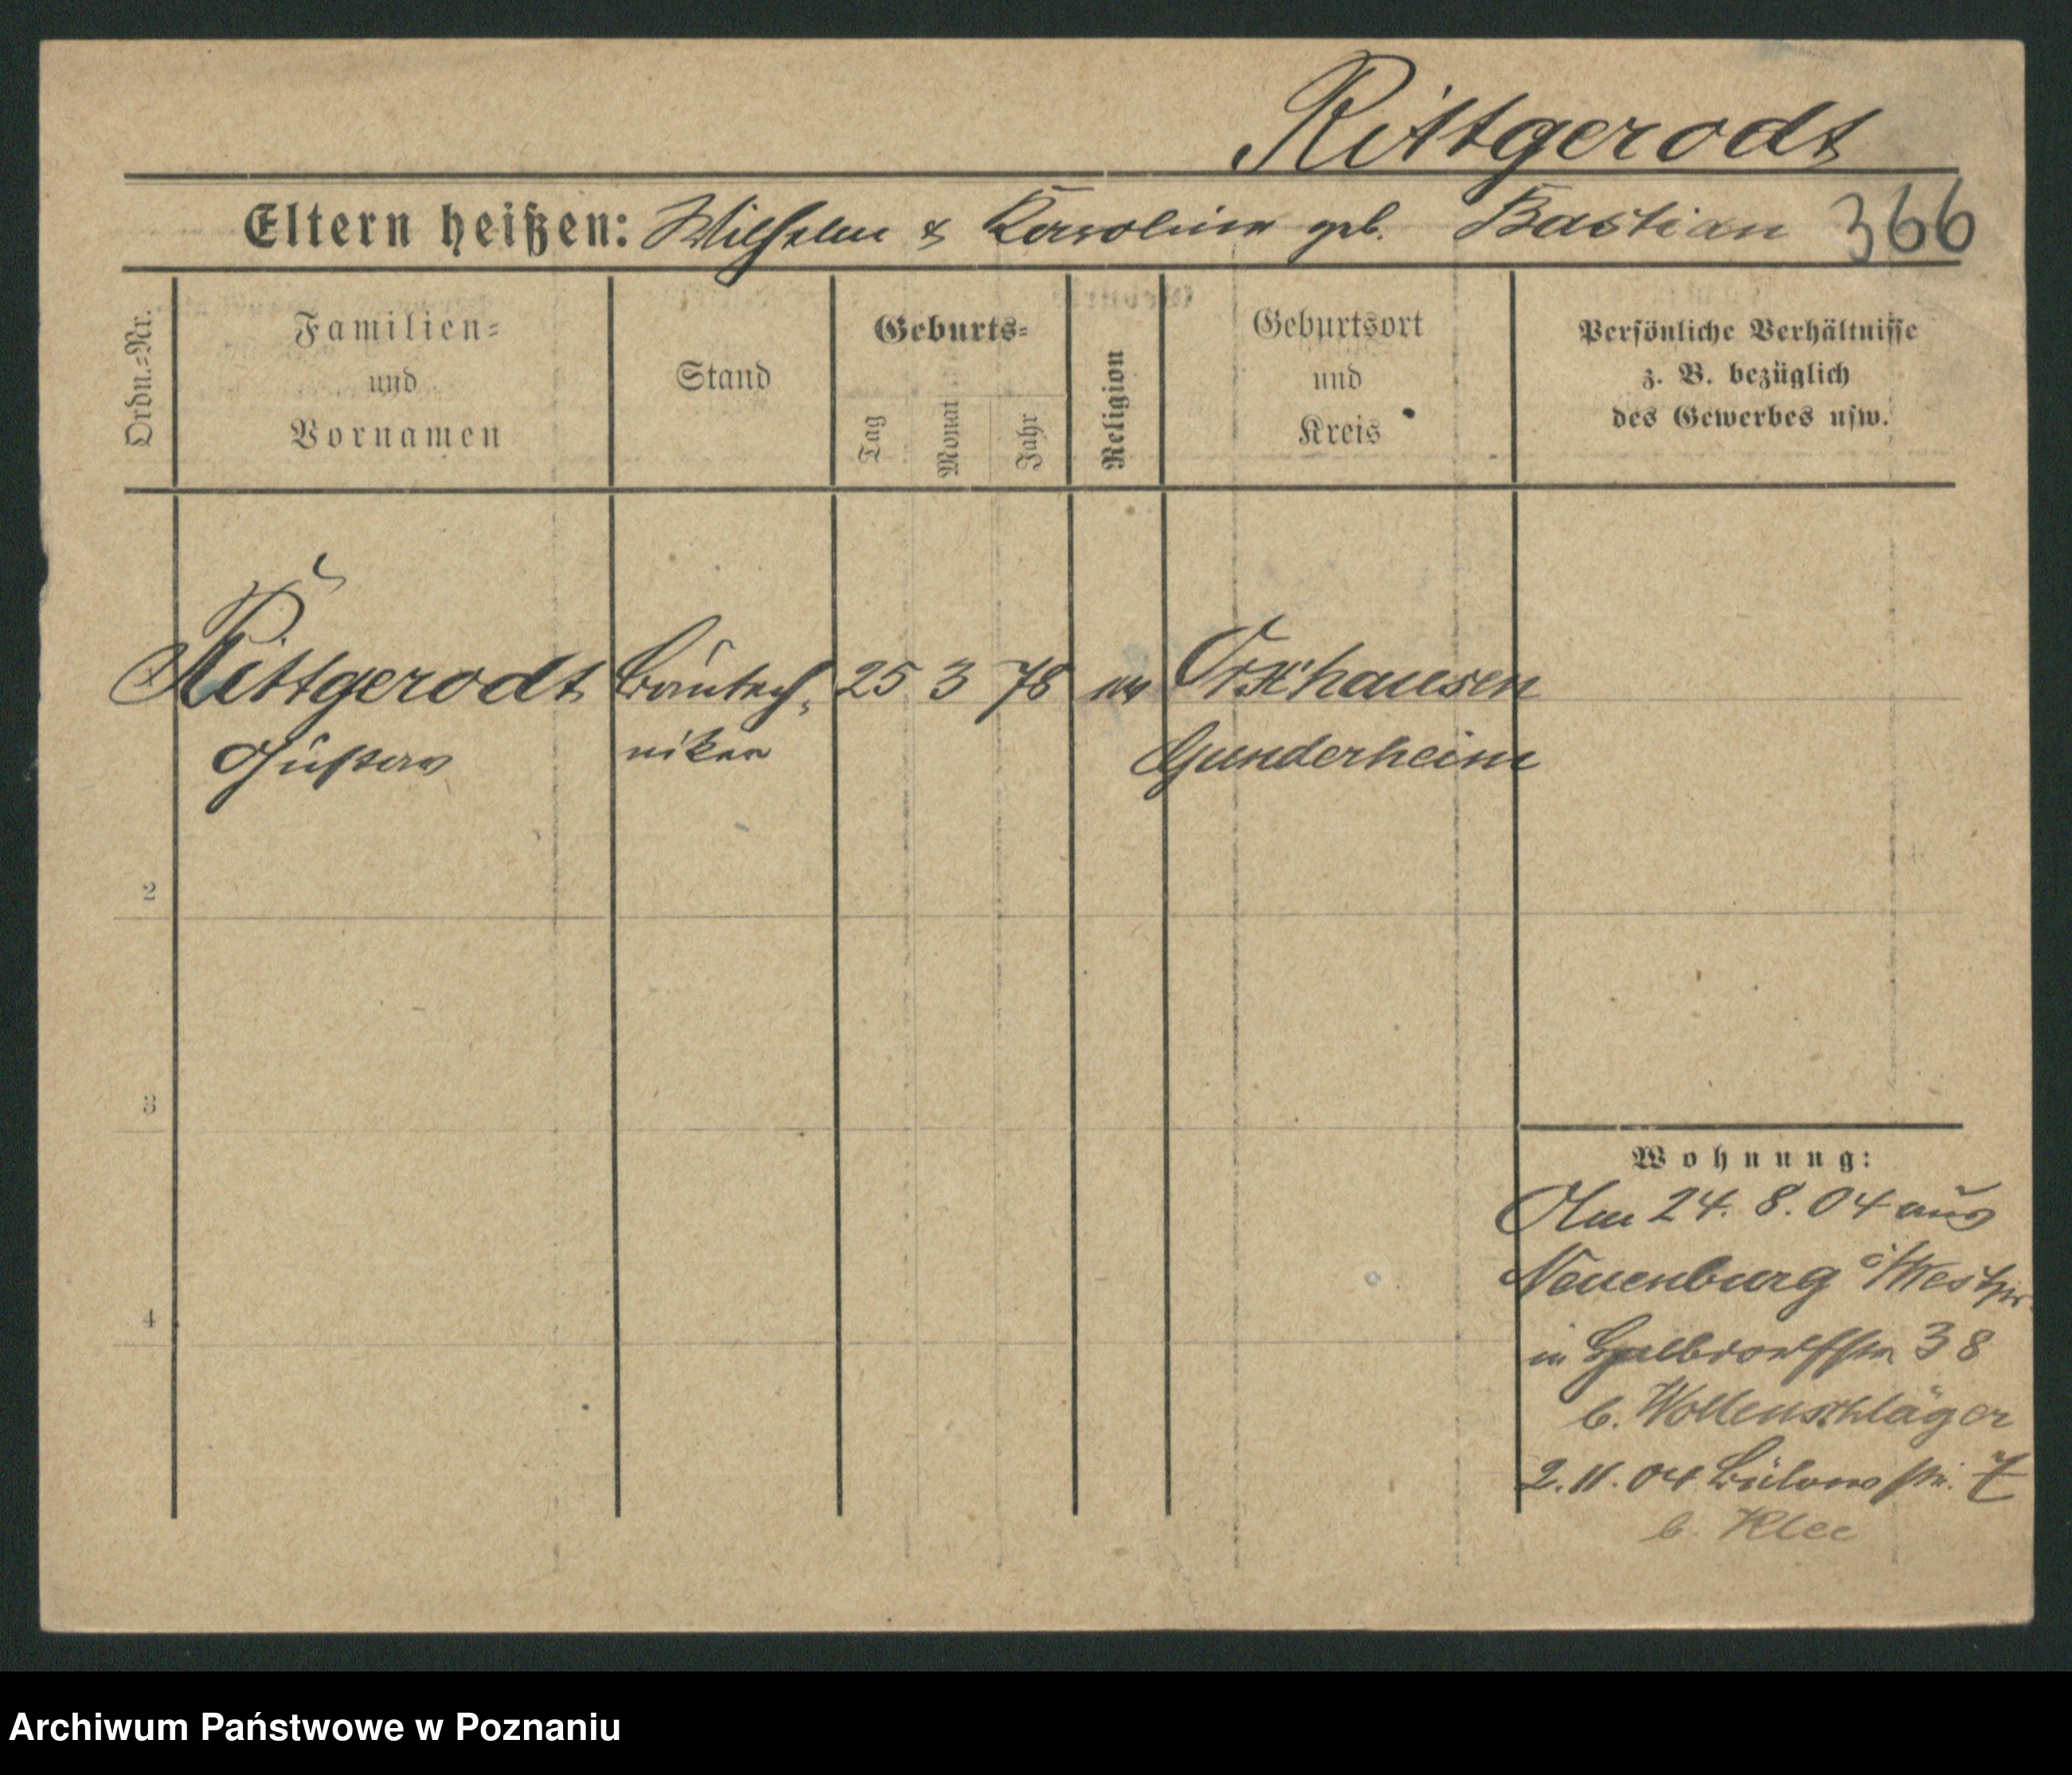 Rittgerodt
Eltern heißen: Wilhelm & Karoline geb. Bastian 366
Ordn.=Nr.
Familien=
und
Vornamen
Stand
Geburts=
Tag
Monat
Jahr
Religion
Geburtsort
und
Kreis
Persönliche Verhältnisse
z. B. bezüglich
des Gewerbes usw.
Rittgerodt Bautech- 25 3 78
Gustav niker
2
3
4
Wohnung:
Am 24. 8. 04 aus
Neuenburg i Westpr.
in 38
b. Wollenschläger
2. 11. 04 Bülowstr. 7
b. Klee
Archiwum Państwowe w Poznaniu